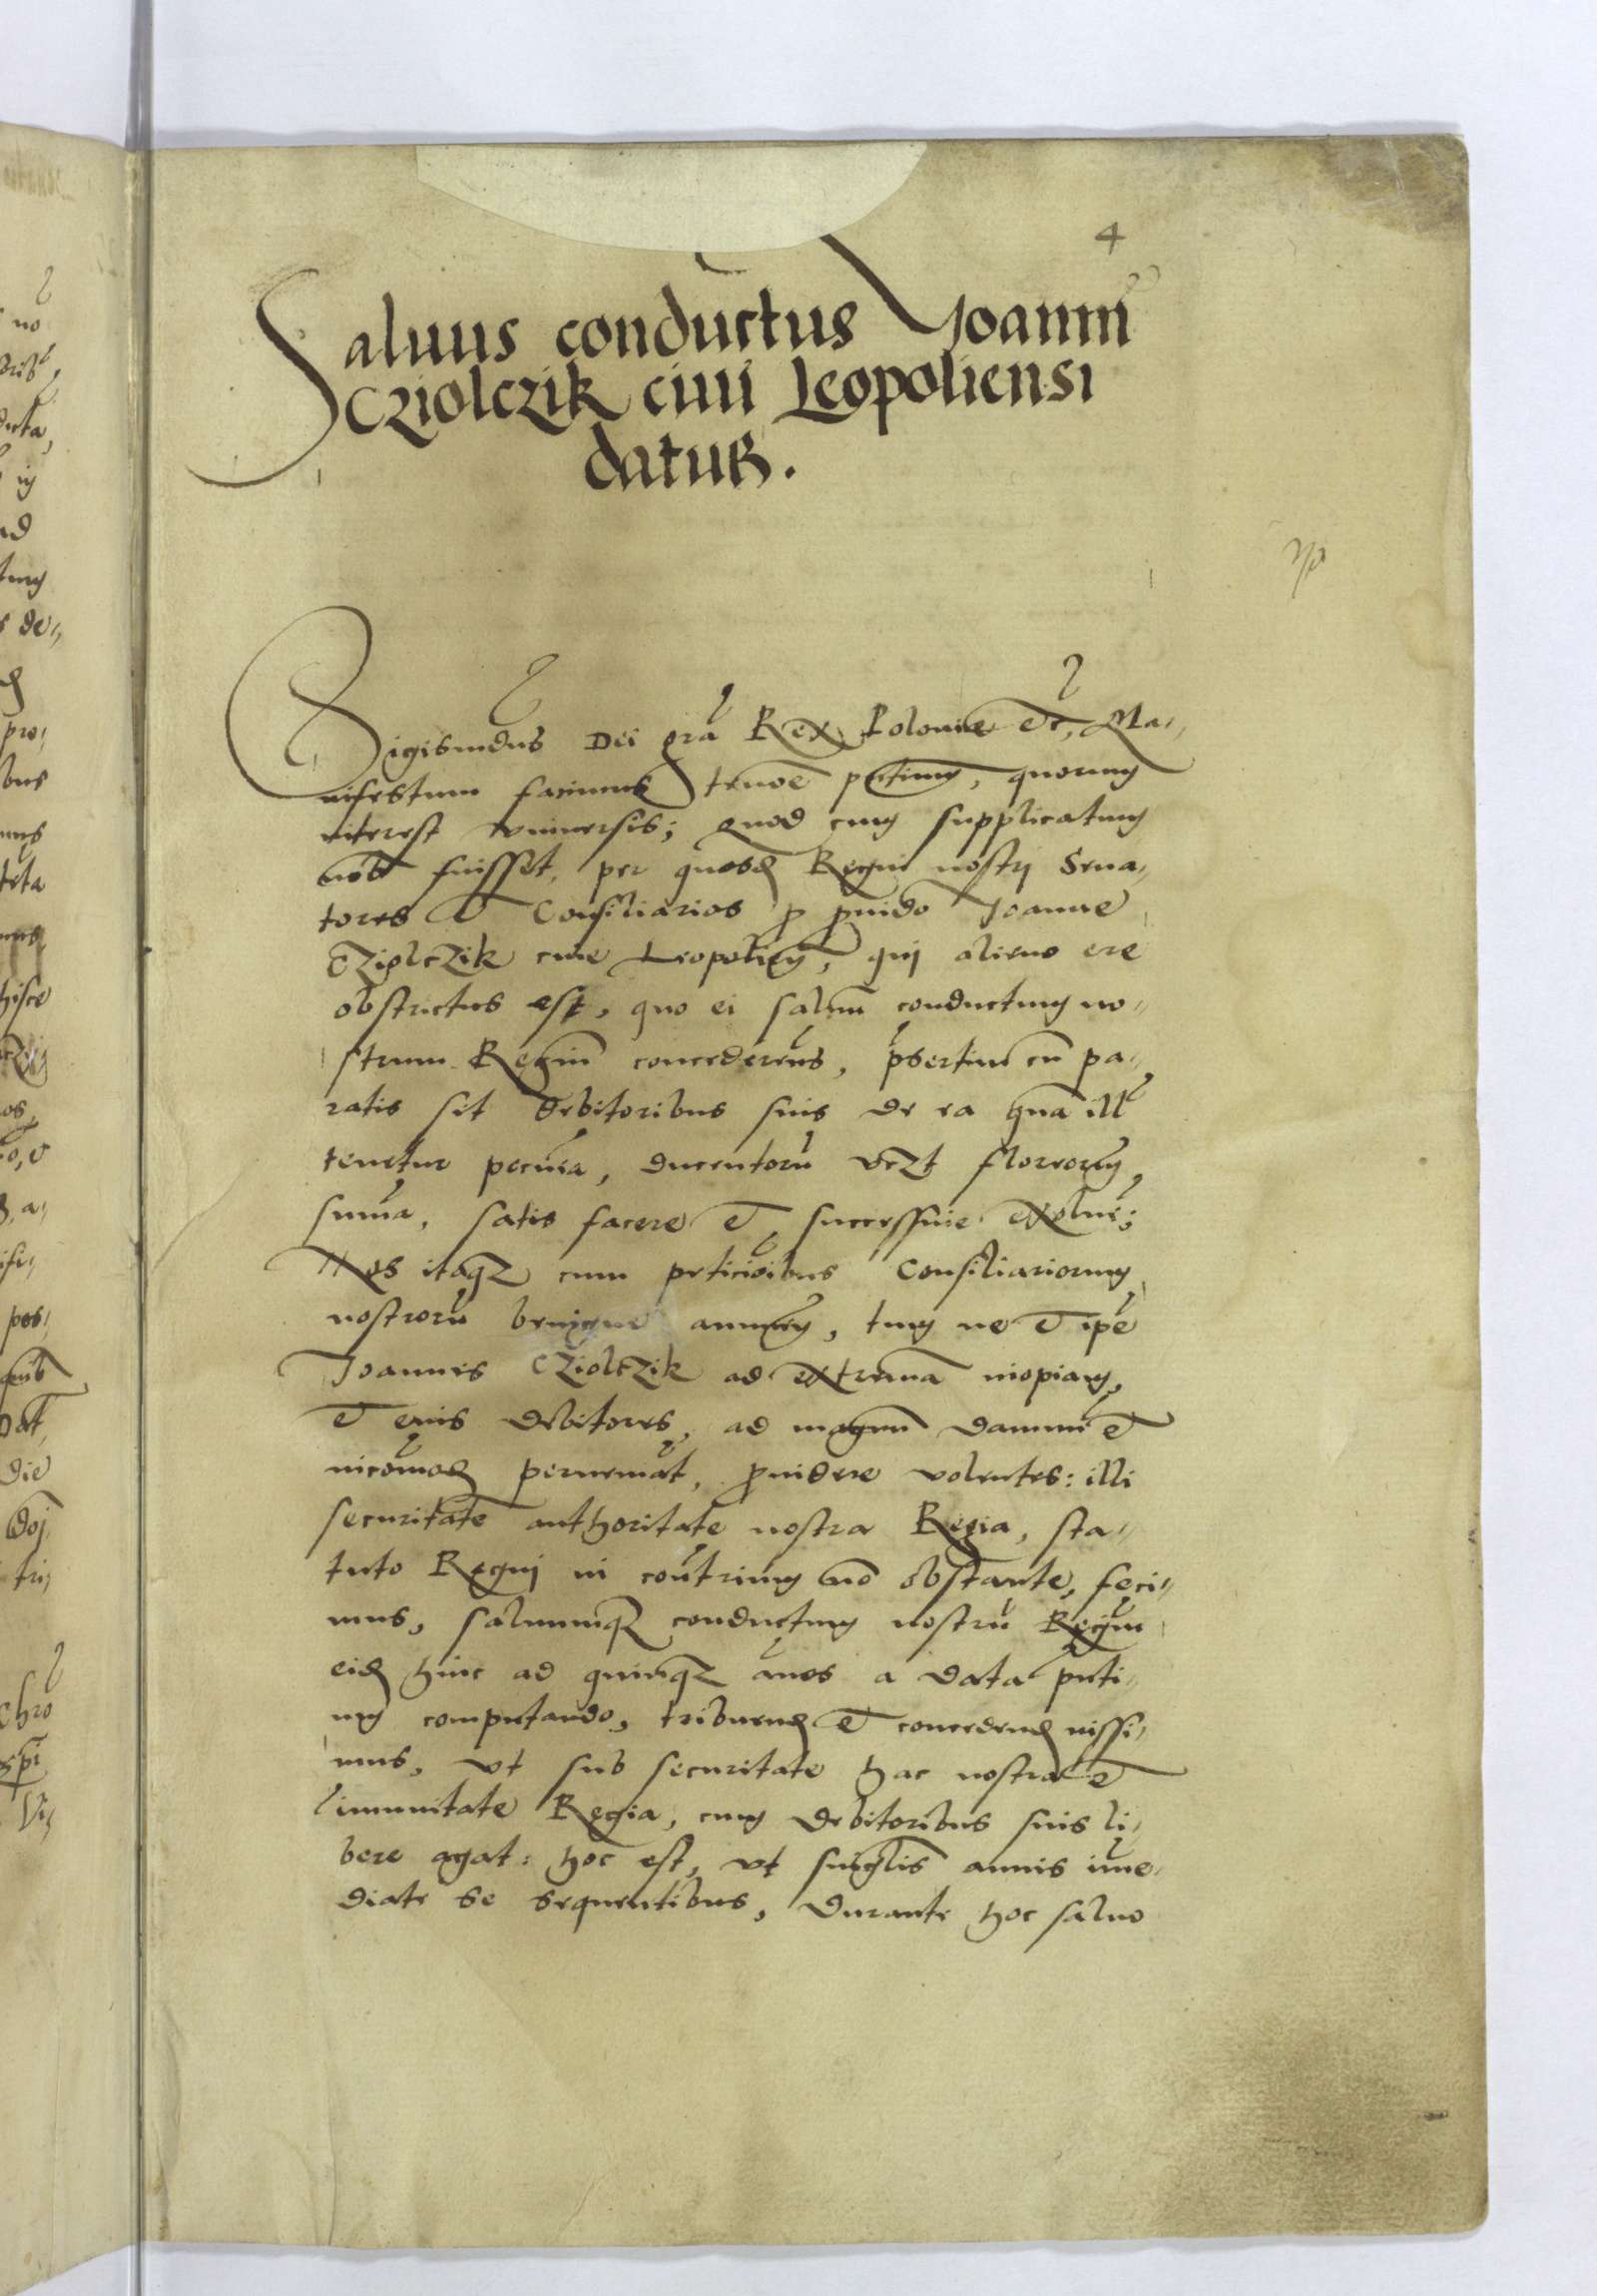 4
Saluus conductus Joanni
Cziolczik ciui Leopoliensi
datur.
Sigismdus Dei gra Rex Polonie etc, Ma„
nifestum facimus tenore pntium, quorum
interest vniuersis; quod cum supplicatum
nob fuisset, per quosd Regni nostrj Sena„
tores et Consiliarios p puido Joanne
Cziolczik ciue Leopolien, qui alieno ere
obstrictus est, quo ei saluu conductum no„
strum Regiu concederems, psertim cu pa„
ratus sit debitoribus suis de ea qua ill
tenetur pecuia, ducentoru vczt florenorum
suma, satis facere et successiue exoluer;
Nos itaqz cum peticioibus Consiliariorum
nostroru benigne annuen, tum ne et ipe
Joannes Cziolczik ad extrema inopiam,
et eius debitores, ad magnu damnu et
incomod perueniat, puidere volentes: illi
securitate authoritate nostra Regia, sta„
tuto Regnj in contrium no obstante, feci„
mus, saluumqz conductum nostru Regiu
eid hinc ad quinqz anos a data pnti„
um computando, tribuend et concedend
mus, vt sub securitate hac nostra et
imunitate Regia, cum debitoribus suis li„
bere agat: hoc est, vt singlis annis ime„
diate se sequentibus, durante hoc saluo